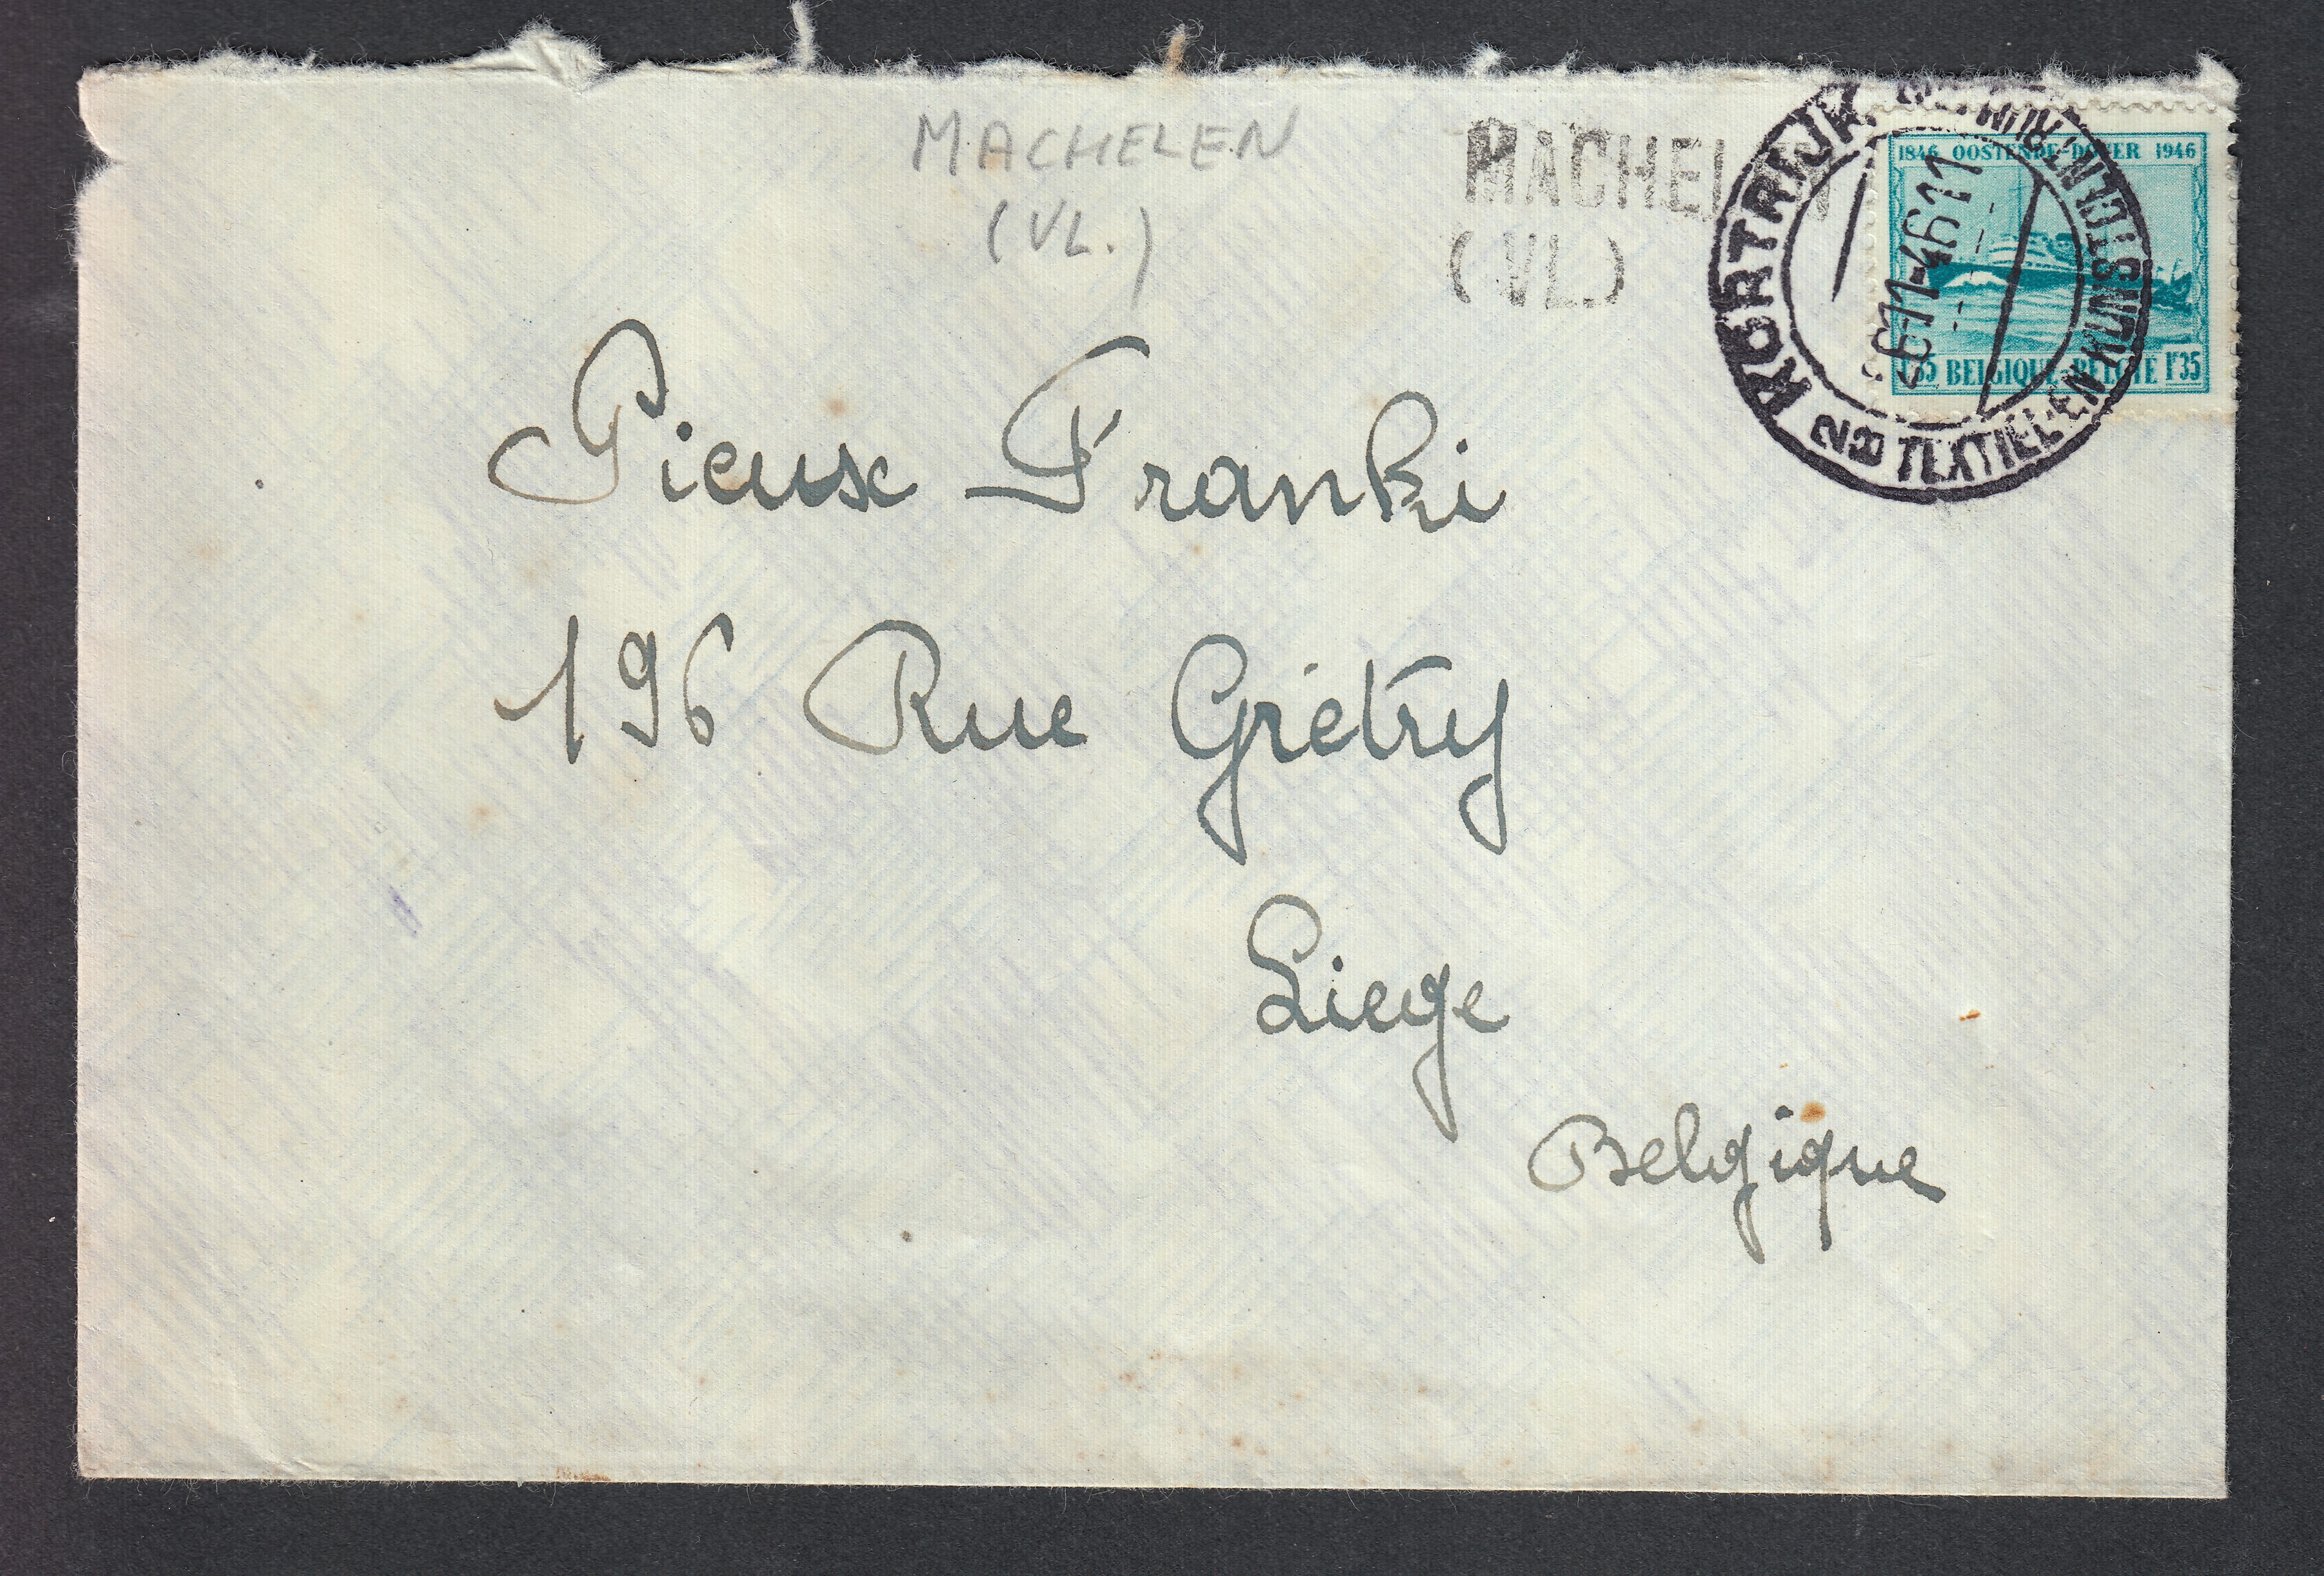 MACHELEN
(VL.)
MACHELEN
(VL.)
KORTRIJK
TEXTIEL EN VLAS
1846 OOSTENDE-DOVER 1946
BELGIQUE-BELGIE 1F35
Pieux Franki
196 Rue Grétry
Liege
Belgique